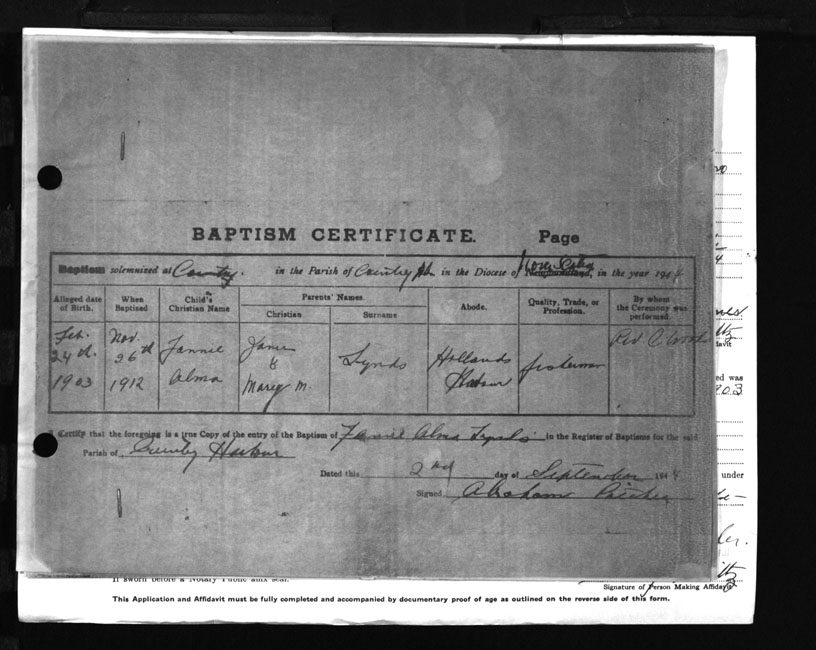 BAPTISM CERTIFICATE. Page
Baptism solemnized at Country. in the Parish of Country Hr in the Diocese of Nova Scotia Newfoundland, in the year 1944
Alleged date of Birth. When Baptized Child's Christian Name Parents' Names. Abode. Quality, Trade, or Profession. By whom the Ceremony was performed.
Christian Surname
Feb. 24th. 1903 Nov. 26th 1912 Fannie Alma James & Mary M. Lynds Hollands Harbour fisherman Rev. C.
I Certify that the foregoing is a true Copy of the entry of the Baptism of Fannie Alma Lynds in the Register of Baptisms for the said
Parish of Country Harbour
Dated this 2nd day of September 1944
Signed Abraham
ed was
903
under
If sworn before a Notary Public affix seal.
Signature of Person Making Affidavit
This Application and Affidavit must be fully completed and accompanied by documentary proof of age as outlined on the reverse side of this form.